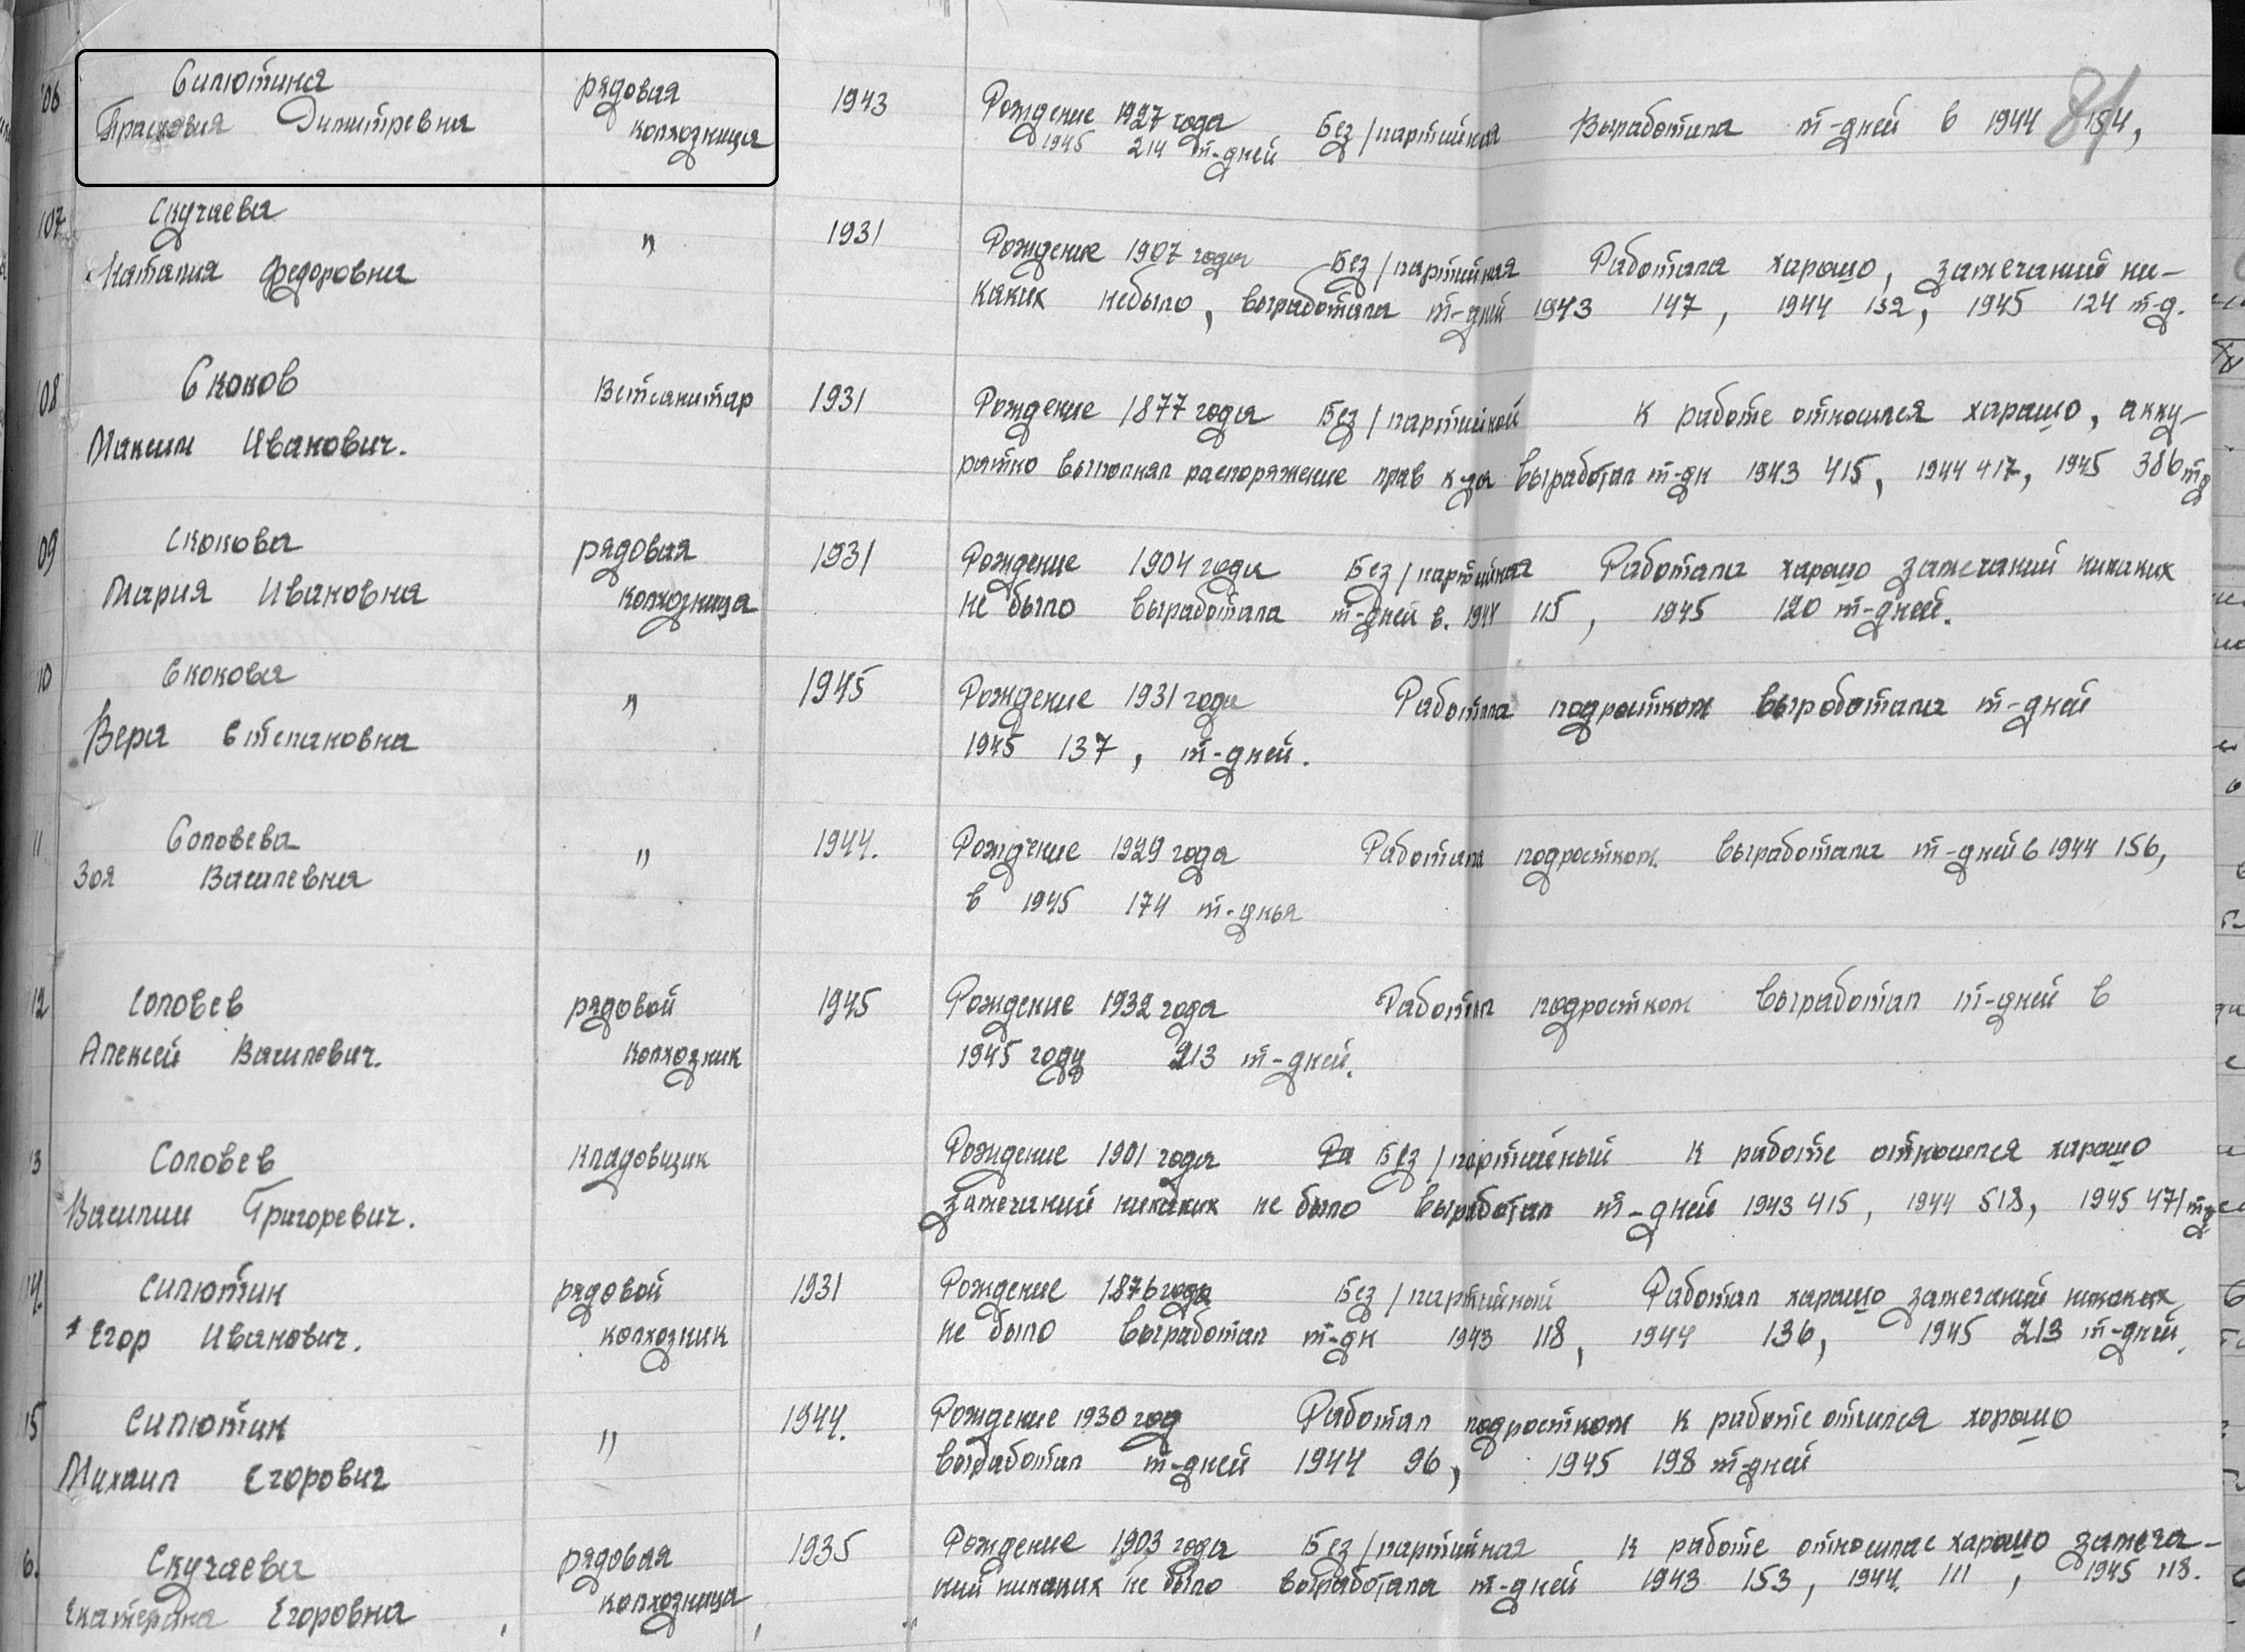 106 Силютина рядовая 1943 Рождение 1927 года Без/партийная Выработала т-дней в 1944 154, 81
Прасковия Димитревна колхозница 1945 214 т-дней
107 Скучаева " 1931 Рождение 1907 года Без/партийная Работала харашо, замечаний ни-
Наталия Федоровна каких небыло, выработала т-дней 1943 147, 1944 132, 1945 124 т-д.
108 Скоков Ветсанитар 1931 Рождение 1877 года Без/партийной К работе относился харашо, акку-
Максим Иванович. ратно выполнял распоряжение прав к-за выработал т-дн 1943 415, 1944 417, 1945 386 тд
109 Скокова рядовая 1931 Рождение 1904 года Без/партийная Работала харашо замечаний никаких
Мария Ивановна колхозница не было выработала т-дней в. 1944 115, 1945 120 т-дней.
110 Скокова " 1945 Рождение 1931 года Работала подростком выроботала т-дней
Вера Степановна 1945 137, т-дней.
11 Соловева " 1944. Рождение 1929 года Работала подростком. Выработала т-дней в 1944 156,
Зоя Василевна в 1945 174 т-дня
12 Соловев рядовой 1945 Рождение 1932 года Работал подростком выработал т-дней в
Алексей Василевич. колхозник 1945 году 213 т-дней.
13 Соловев Кладовщик Рождение 1901 года Ра Без/партийный К работе относился харашо
Василии Григоревич. замечаний никаких не было выработал т-дней 1943 415, 1944 518, 1945 471 тд
114. Силютин рядовой 1931 Рождение 1876 года Без/партийный Работал харашо замечаний никаких
Егор Иванович. колхозник не было выработал т-дн 1943 118, 1944 136, 1945 213 т-дней.
15 Силютин " 1944. Рождение 1930 год Работал подростком к работе отнлся хорашо
Михаил Егорович выработал т-дней 1944 96, 1945 198 т-дней
6. Скучаева рядовая 1935 Рождение 1903 года Без/партийная К работе относилас харашо замеча-
Екатерина Егоровна колхозница ний никаких не было выработала т-дней 1943 153, 1944. 111, 1945 118.